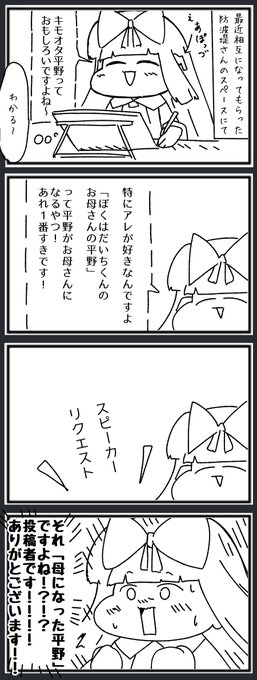 最近相互になってもらった
防波堤さんのスペースにて
えあぽっづ
キモオタ平野って
おもしろいですよね
わかる〜
特にアレが好きなんですよ
「ぼくはだいちくんの
お母さんの平野」
って平野がお母さんに
なるやつ！
あれ1番すきです！
スピーカー
リクエスト
それ「母になった平野」
ですよね！？！？
投稿者です！！！！！
ありがとございます！！